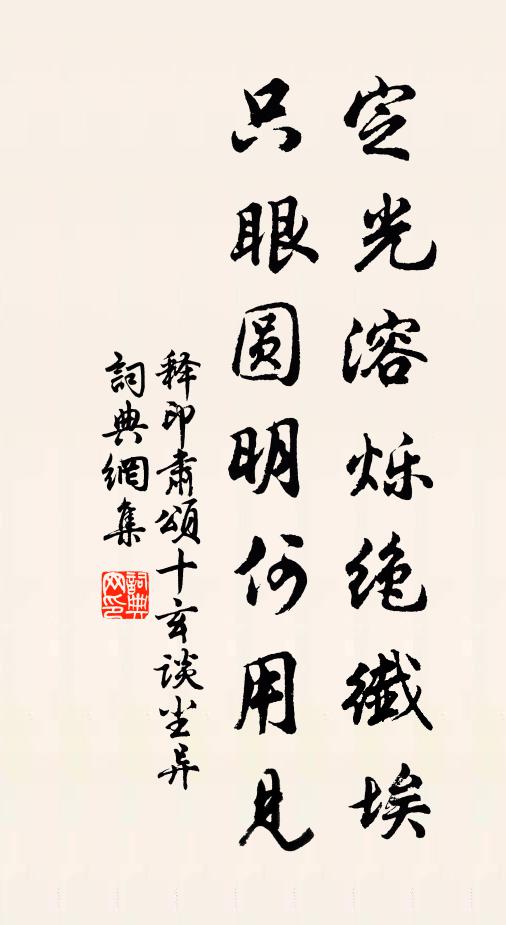 定光溶烁绝纎埃
只眼圆明何用見
释印肃頌十玄谈尘异
詞典網集
詞典网印